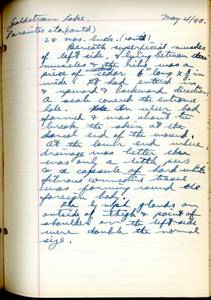 Goldstream Lake. May 4/40.
Parasites etc (cont'd)
24 mos. buck. (cont'd)
Beneath superficial muscles
of left side, & lying between
muscles & the ribs was a
piece of cedar 6" long x 3/4 in
wide. It had entered in
a upward & backward direction
A scab covered the entrance
hole. an ulcer had
formed & was about to
break the skin at the
dorsal end of the wound,
At the lower end where
drainage was better there
was only a little pus
& a capsule of hard white
fibrous connective tissue
was forming round the
foreign body.
The lymph glands on
outside of thigh & point of
shoulder on the left side
were double the normal
size.